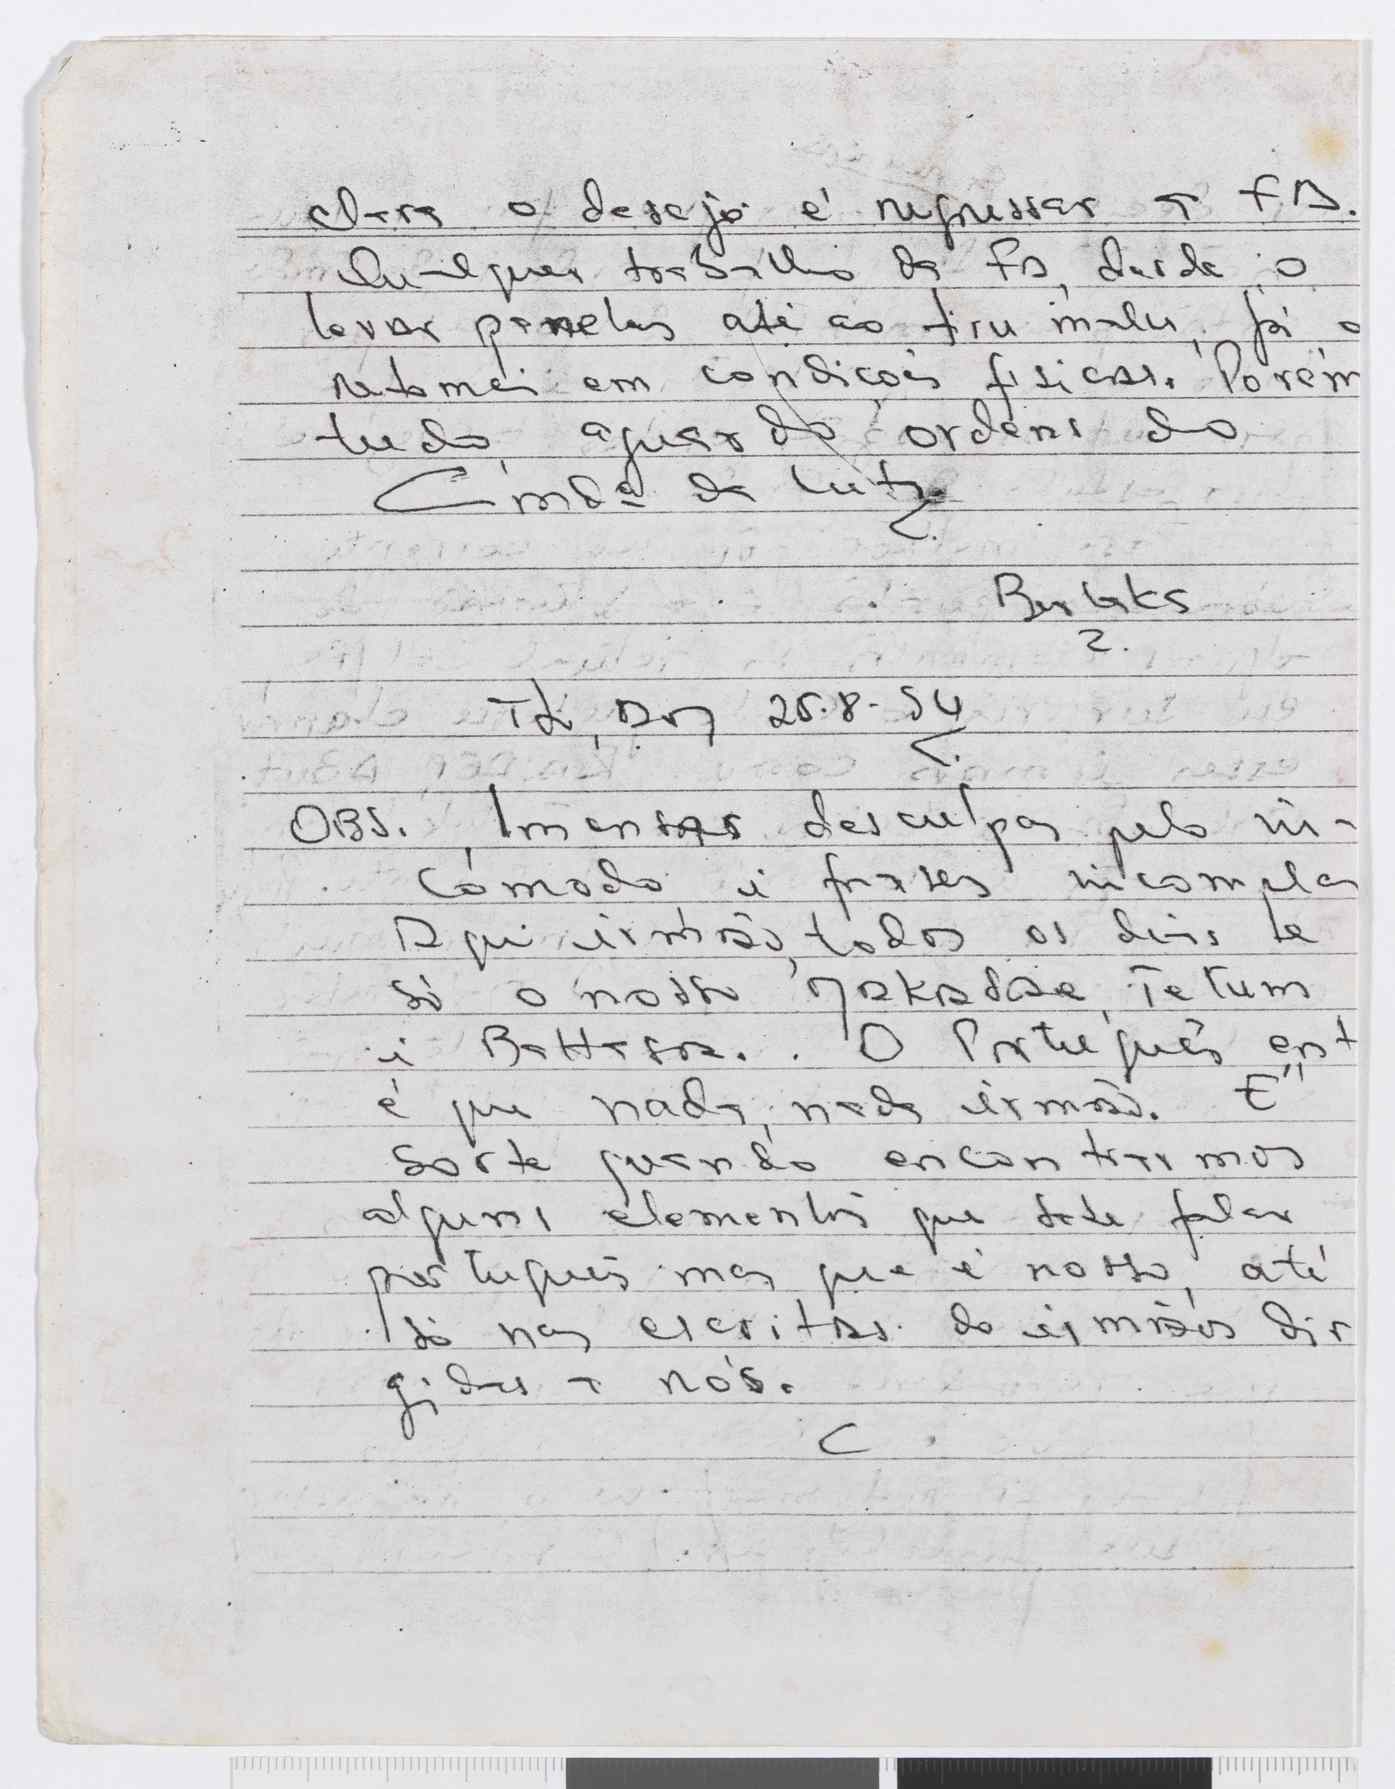 o desejo é regressar a FA.
Qualquer trabalho da FA, desde o
lavar panelas até ao tiru malu, já o
retomei em condições fisicas. Porém
tudo, aguardo ordens do
Cmdº da Luta.
25.8.94
OBS. Imensas desculpas pelo in-
cómodo e frases incomple
Aqui irmão, todos os dias te
só o nosso Makadae, Tetum
e Bahasa. O Português ent
é que nada, nada irmão. É
sorte quando encontrarmos
alguns elementos que sabe falar
português mas que é nosso, até
só nas escritas do irmãos dir
gidas a nós.